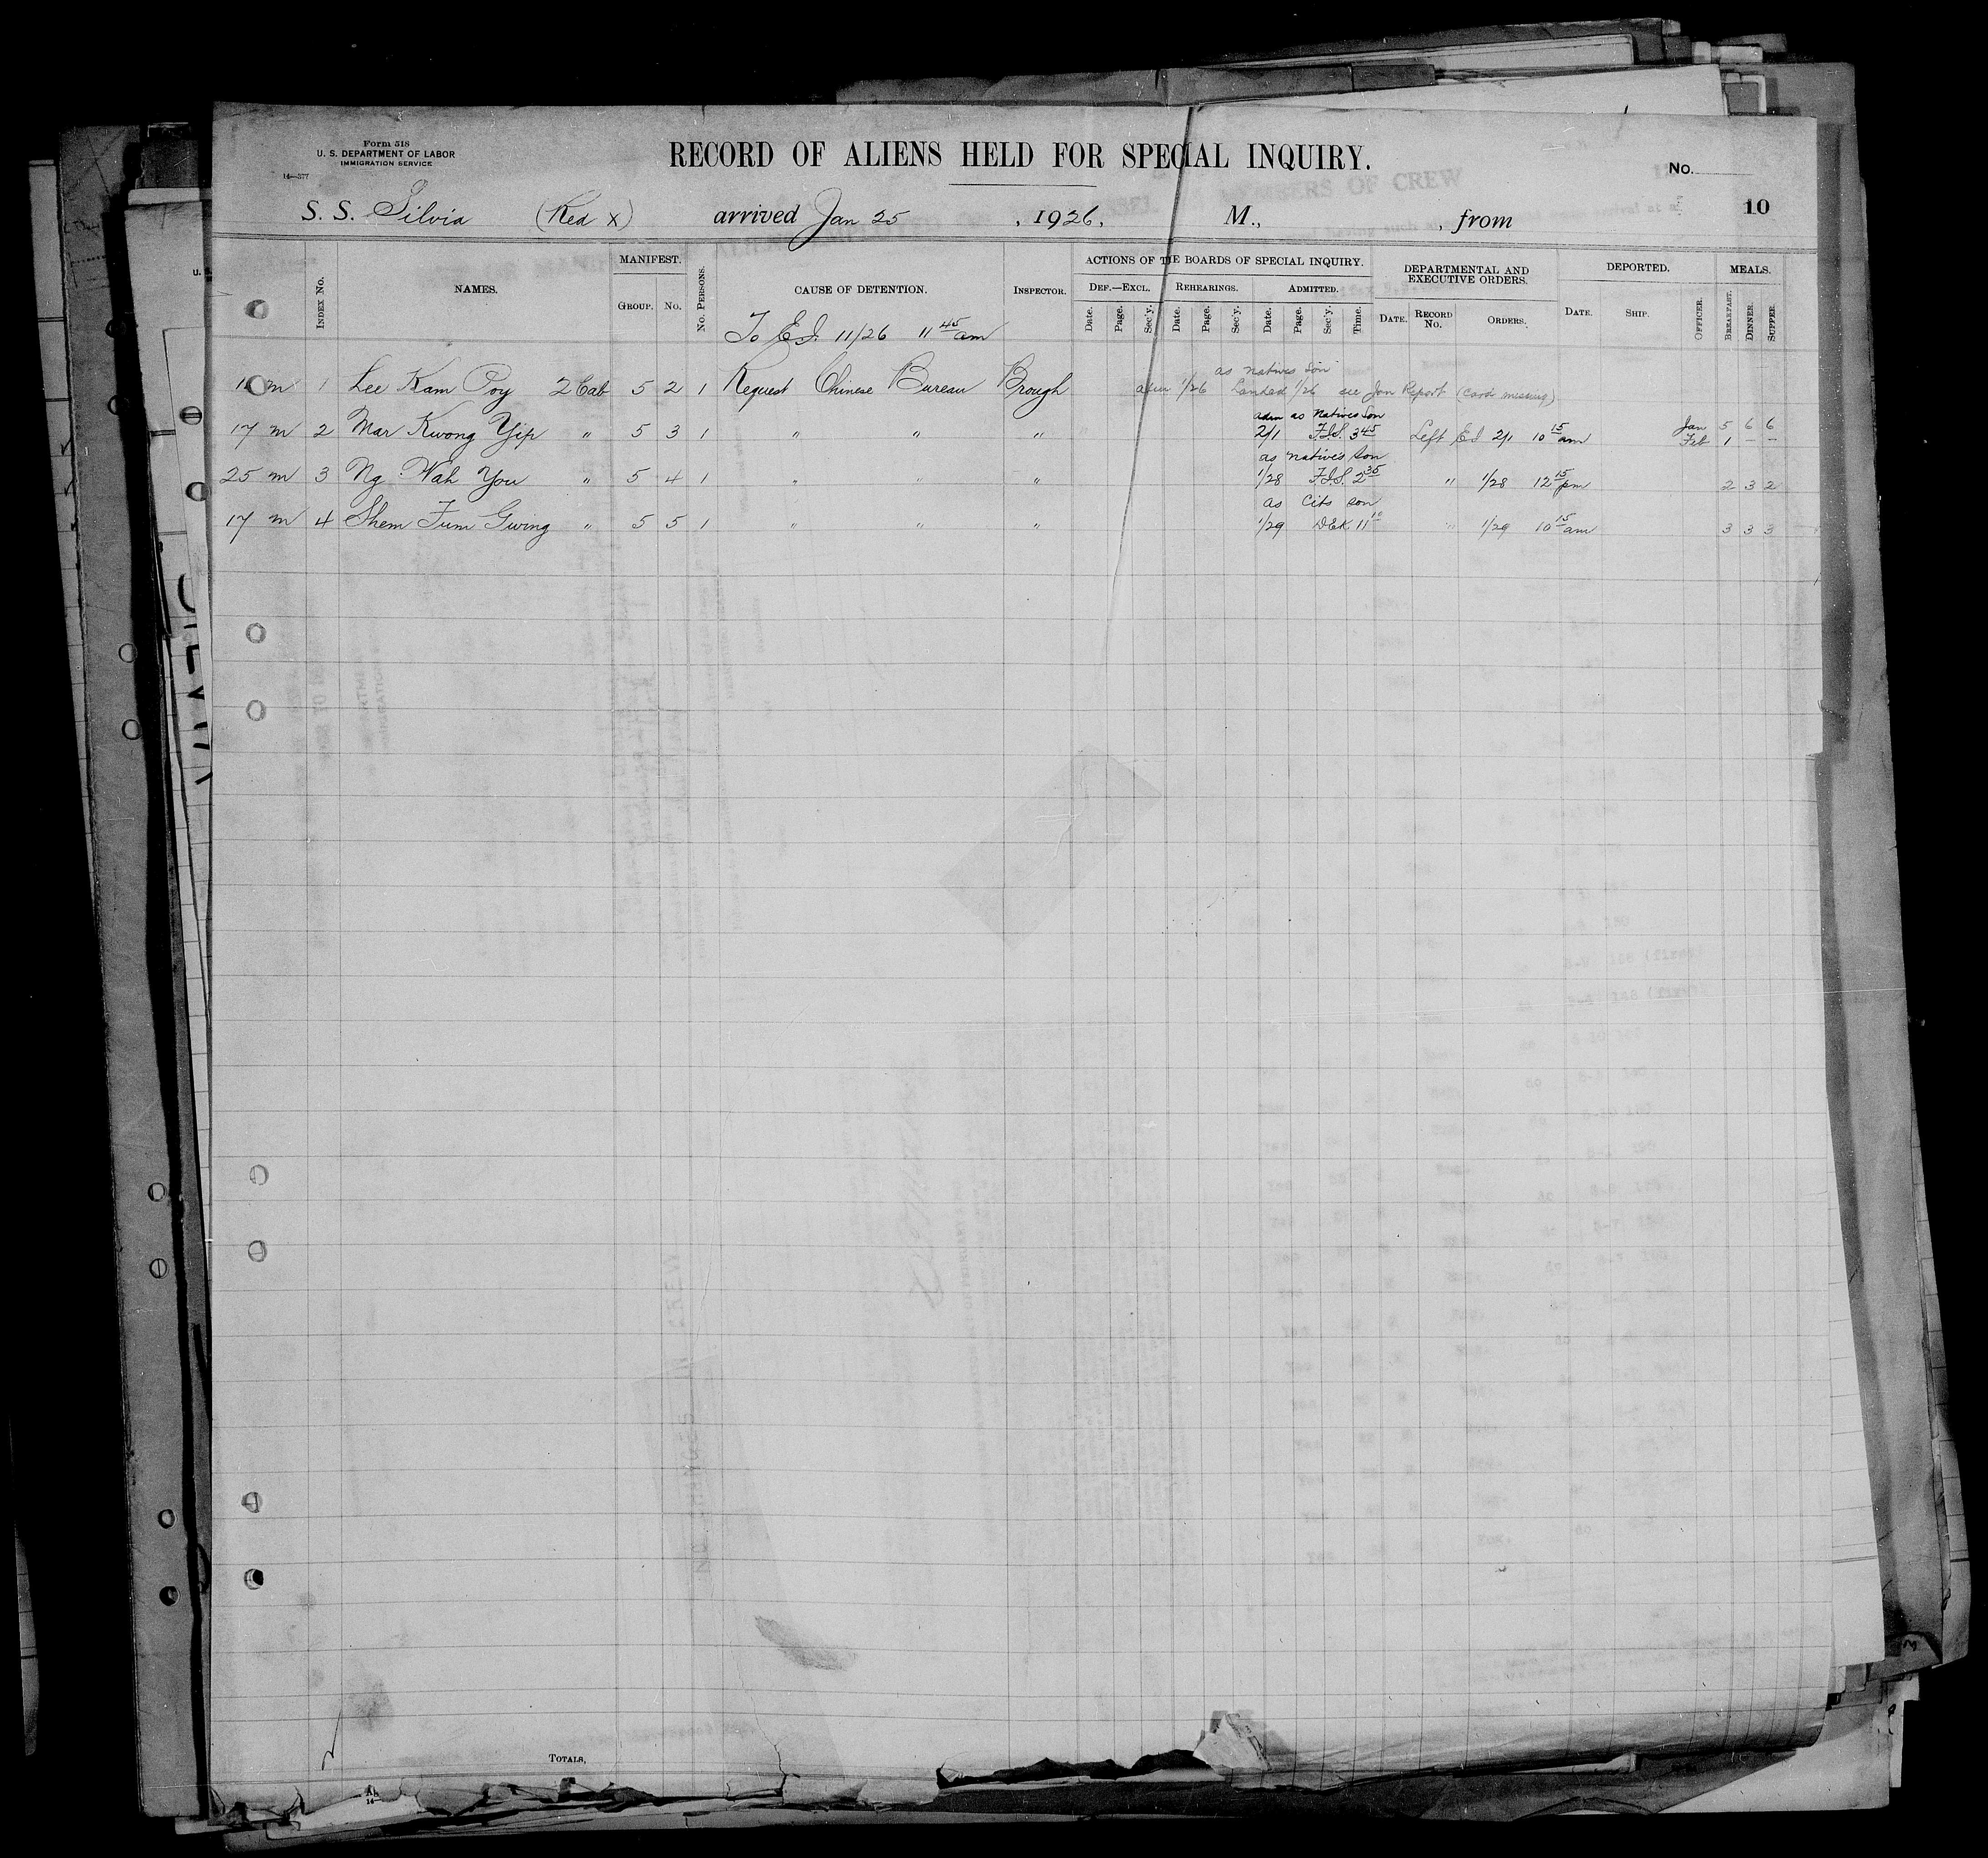 Form 518
U. S. DEPARTMENT OF LABOR
IMMIGRATION SERVICE
14—377
RECORD OF ALIENS HELD FOR SPECIAL INQUIRY.
No.
S. S. Silvia (Red X) arrived Jan 25, 1926, M., , from
10
INDEX No. NAMES. MANIFEST. GROUP. No. No. PERSONS. CAUSE OF DETENTION. INSPECTOR. ACTIONS OF THE BOARDS OF SPECIAL INQUIRY. DEF.—EXCL. Date. Page. Sec'y. REHEARINGS. Date. Page. Sec'y. ADMITTED. Date. Page. Sec'y. Time. DEPARTMENTAL AND EXECUTIVE ORDERS. DATE. RECORD No. ORDERS. DEPORTED. DATE. SHIP. OFFICER. MEALS. BREAKFAST. DINNER. SUPPER.
To E.I. 11/26 11 45 am
as natives son
m 1 Lee Kam Poy 2 Cab 5 2 1 Request Chinese Bureau Brough adm 1/26 Landed 1/26 see Jan Report (Card missing)
adm as Natives Son
17 m 2 Mar Kwong Yip " 5 3 1 " " " 2/1 F.I.S. 3 45 Left E I 2/1 10 15 am Jan 5 6 6
Feb 1 - -
as natives son
25 m 3 Ng Wah You " 5 4 1 " " " 1/28 F.I.S. 2 35 " 1/28 12 15 pm 2 3 2
as Cits son
17 m 4 Shem Fum Gwing " 5 5 1 " " " 1/29 DEK 11 10 " 1/29 10 15 am 3 3 3
TOTALS,